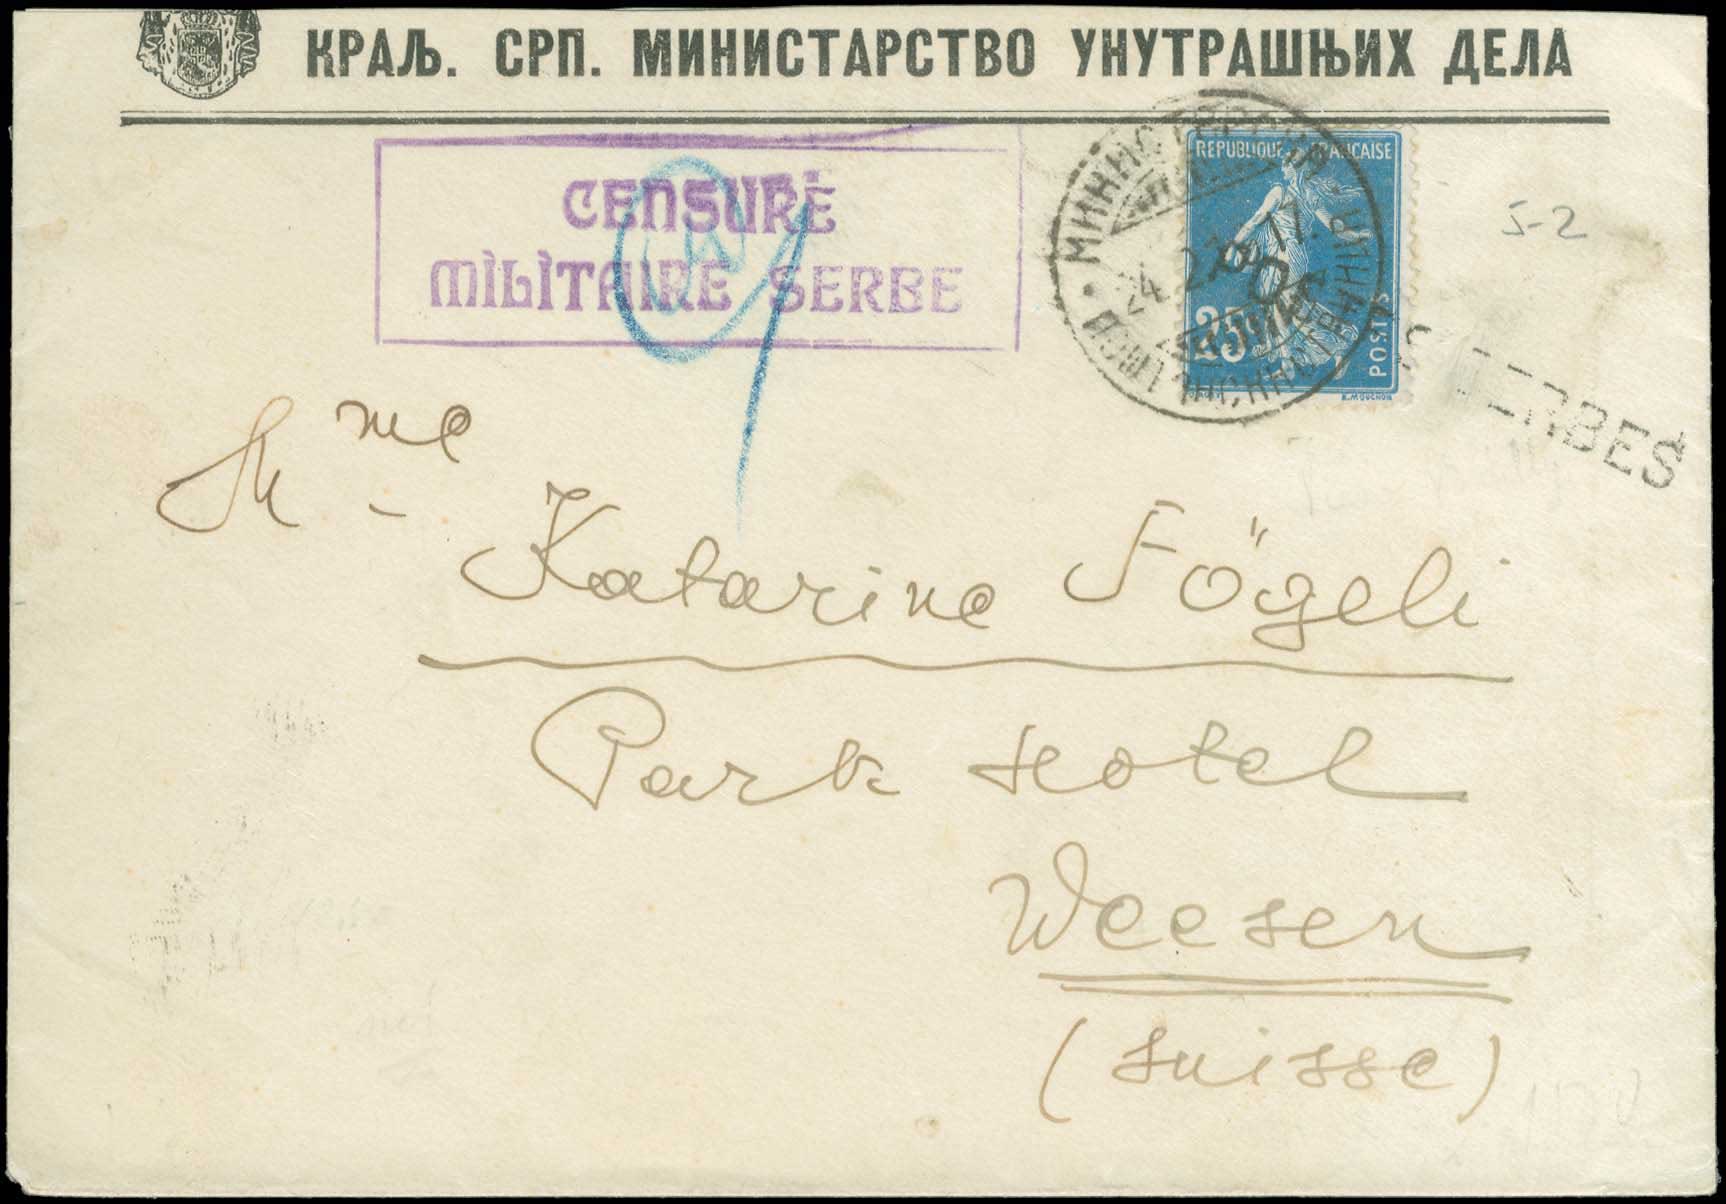 КРАЉ. СРП. МИНИСТАРСТВО УНУТРАШЊИХ ДЕЛА
CENSURÉ
MILITAIRE SERBE
REPUBLIQUE FRANCAISE
25
POSTES
24. 17.
S-2
SERBES
Mme
Katarine Fögeli
Park Hotel
Weesen
(Suisse)